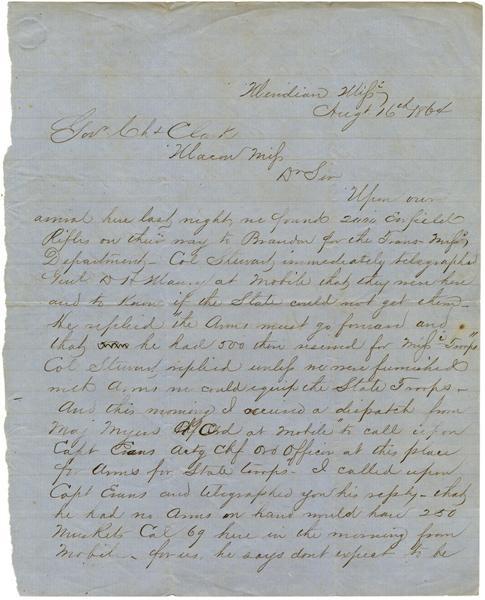 Meridian Miss
Augt 16th 1864
Gov Chs Clark
Macon Miss
Dr Sir
Upon our
arrival here last night we found Enfield
Rifles on their way to Brandon for the Trans Missi
Department - Col Stewart immediately telegraphed
Genl D H Maury at Mobile that they were here
and to know if the State could not get them -
He replied "the Arms must go forward and
that he had 500 there reserved for Missi Troops"
Col Stewart replied unless we were furnished
with Arms we could equip the State Troops -
And this morning I received a dispatch from
Maj Myers Ord at Mobile "to call upon
Capt Evans Actg Chf Ord Officer at this place
for Arms for State troops" - I called upon
Capt Evans and telegraphed you his reply - that
he had no Arms on hand would have 250
Muskets Cal 69 here in the morning from
Mobile - for us, he says dont expect to be